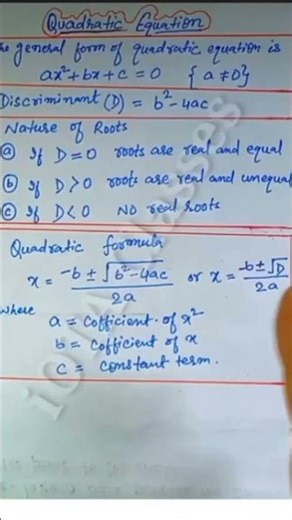 Quadratic Equation
he general form of quadratic equation is
ax²+bx+c=0 {a≠0}
Discriminant (D) = b²-4ac
Nature of Roots
(a) If D=0 roots are real and equal
(b) If D>0 roots are real and unequal
(c) If D<0 No real roots
Quadratic formula
x = -b ± √b²-4ac / 2a or x = -b±√D / 2a
where
a = Cofficient of x²
b = Cofficient of x
c = Constant term.